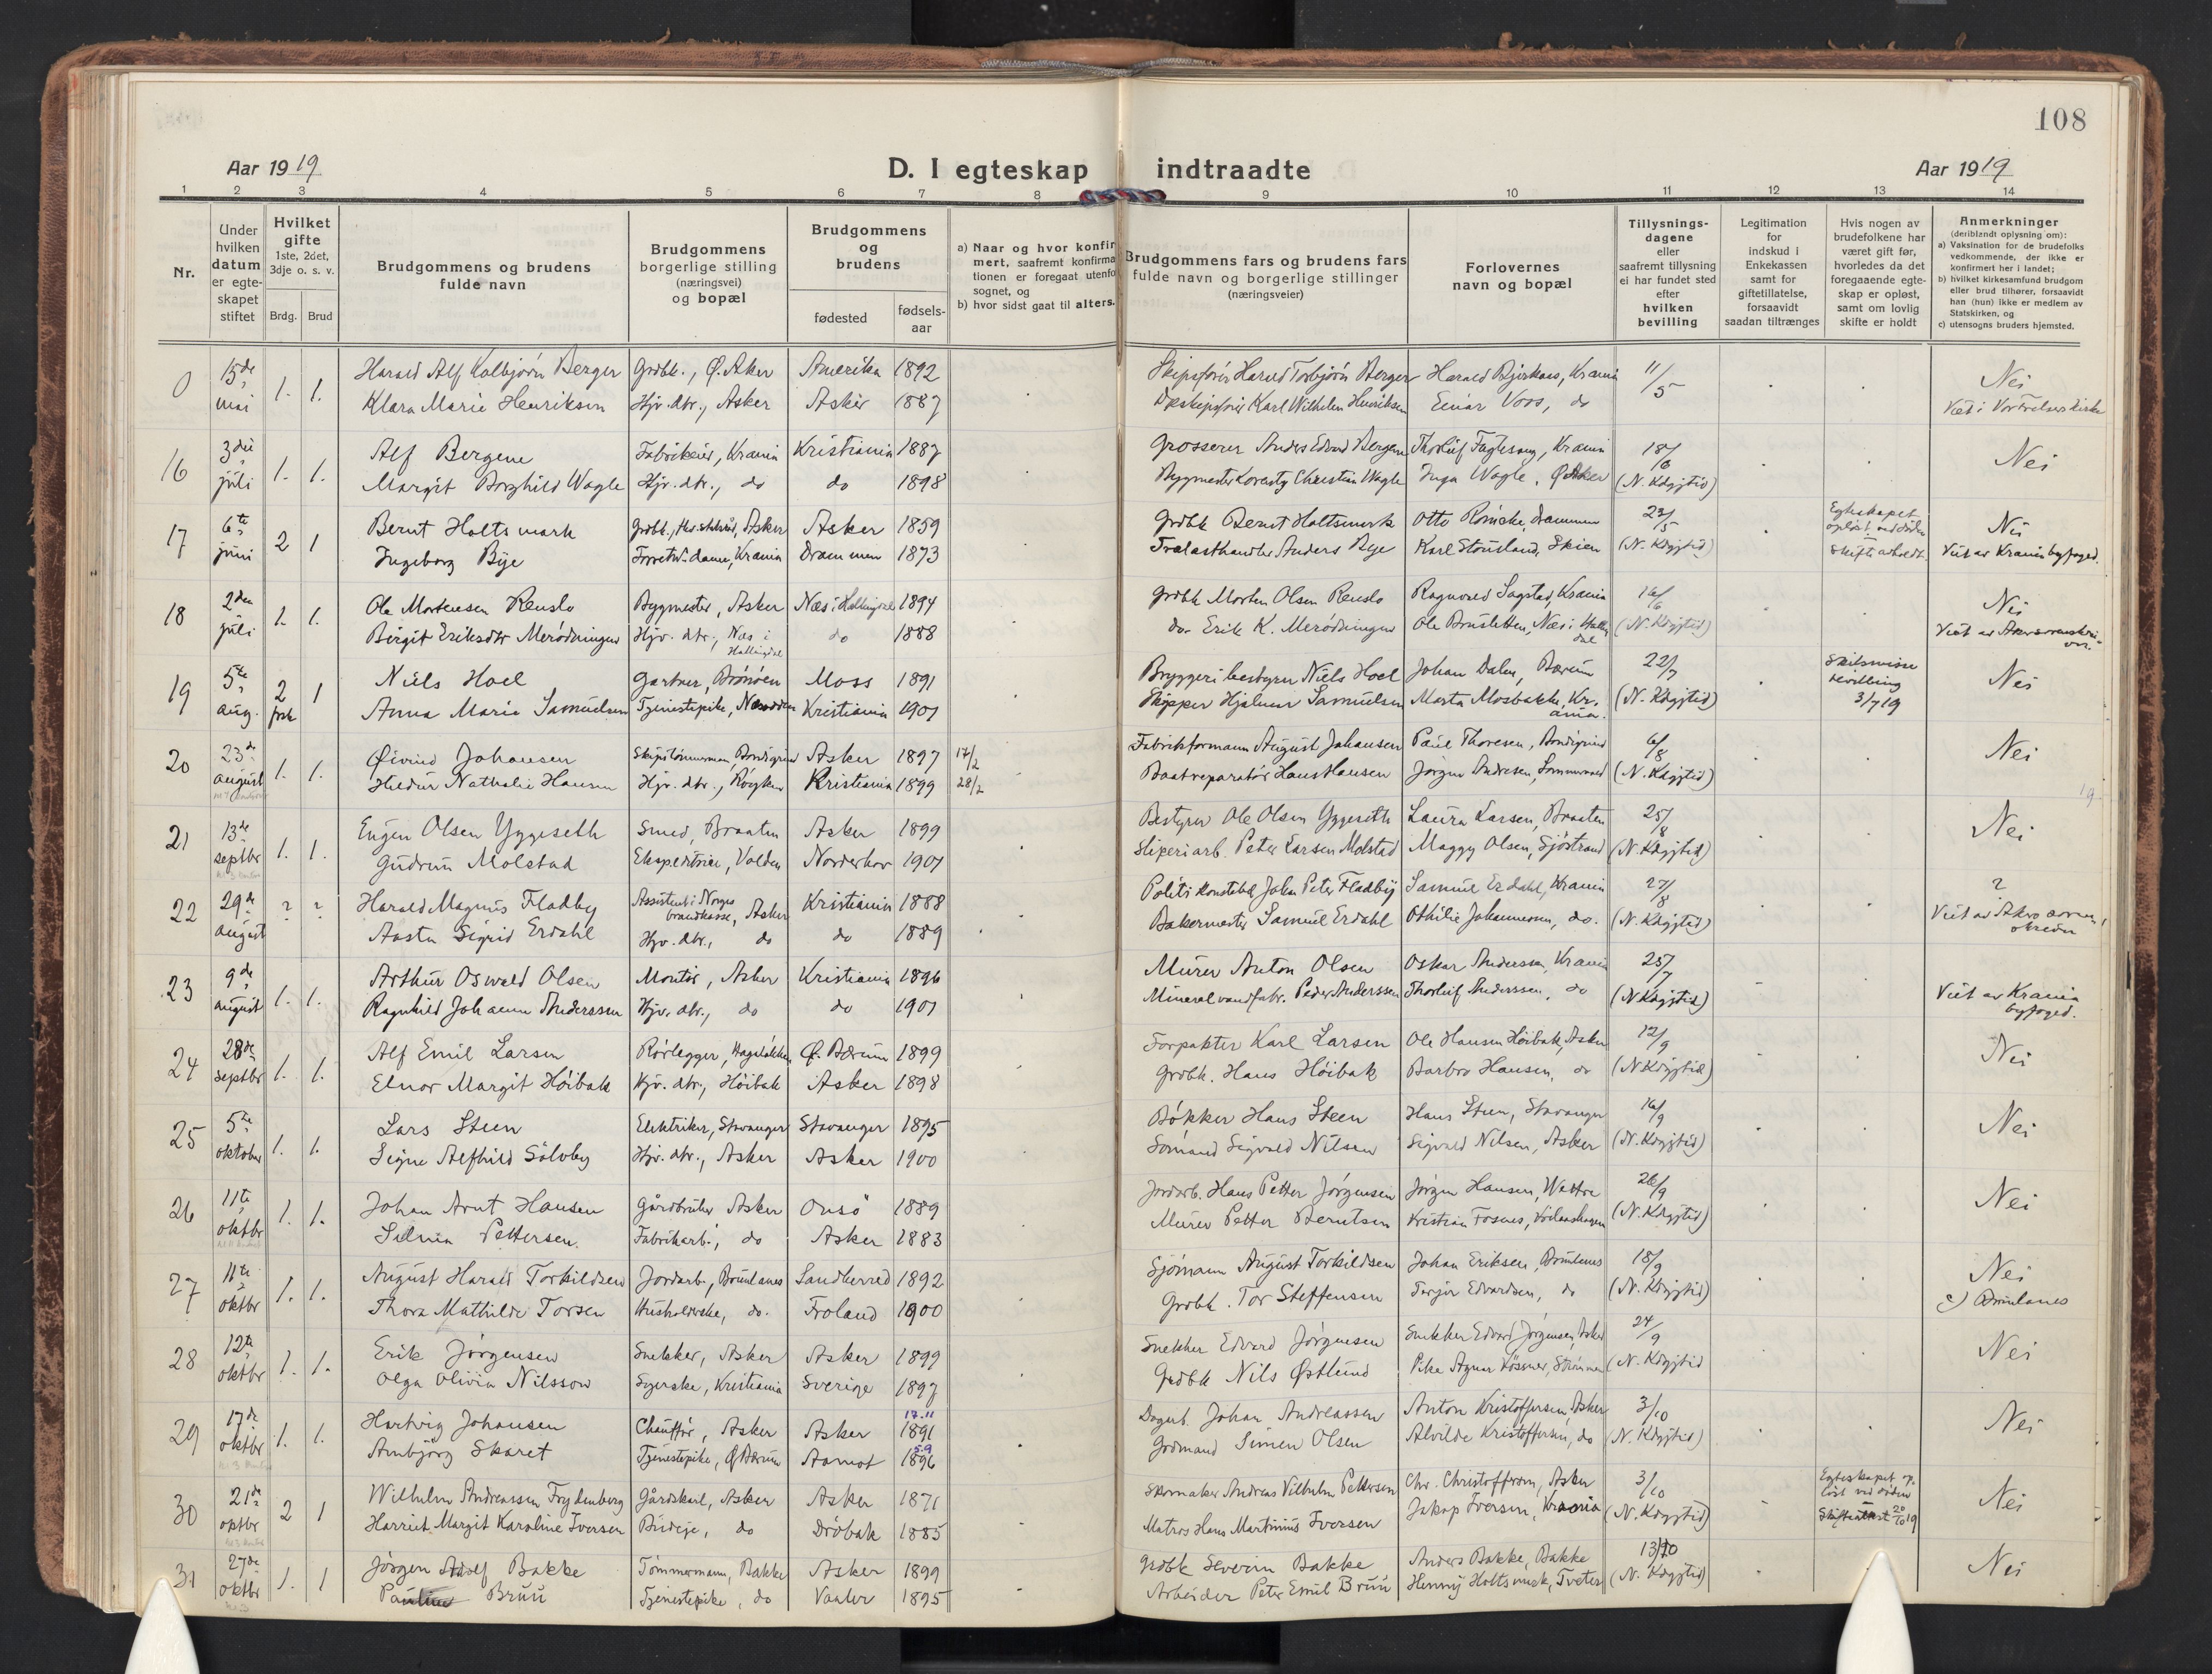 108
Aar 1919
D. I egteskap indtraadte
Aar 1919
1 2 3 4 5 6 7 8 9 10 11 12 13 14
Nr.
Under hvilken datum er egte-skapet stiftet
Hvilket gifte 1ste, 2det, 3dje o. s. v.
Brdg. Brud
Brudgommens og brudens fulde navn
Brudgommens borgerlige stilling (næringsvei) og bopæl
Brudgommens og brudens
fødested
fødsels-aar
a) Naar og hvor konfir
mert, saafremt konfirma
tionen er foregaat utenfo
sognet, og
b) hvor sidst gaat til alters.
Brudgommens fars og brudens fars
fulde navn og borgerlige stillinger
(næringsveier)
Forlovernes
navn og bopæl
Tillysnings-
dagene
eller
saafremt tillysning
ei har fundet sted
efter
hvilken
bevilling
Legitimation
for
indskud i
Enkekassen
samt for
giftetillatelse,
forsaavidt
saadan tiltrænges
Hvis nogen av
brudefolkene har
været gift før,
hvorledes da det
foregaaende egte-
skap er opløst,
samt om lovlig
skifte er holdt
Anmerkninger
(deriblandt oplysning om):
a) Vaksination for de brudefolks
vedkommende, der ikke er
konfirmert her i landet;
b) hvilket kirkesamfund brudgom
eller brud tilhører, forsaavidt
han (hun) ikke er medlem av
Statskirken, og
c) utensogns bruders hjemsted.
0 15de mai 1. 1. Harald Alf Kolbjørn Berger Grdbk., Ø. Aker Amerika 1892 Skipsfører Harald Torbjørn Berger Harald Bjerkaas, Krania 11/5 Nei
Klara Marie Henriksen Hjv. dtr., Asker Asker 1887 Karl Wilhelm Henriksen Einar Voss, do Viet i Vor Frelsers kirke
16 3die juli 1. 1. Alf Bergene Fabrikeier, Krania Kristiania 1887 Grosserer Anders Edvard Bergene Thorleif Fuglesang, Krania 18/6 Nei
Margit Borghild Wagle Hjv. dtr., do do 1898 Bygmester Christian Wagle Inga Wagle, Ø. Aker (N. Kdgjtid)
17 6te juni 2 1 Bernt Holtsmark Grdbk., Asker Asker 1859 Grdbk Bernt Holtsmark Otto Reinicke, Drammen 23/5 Egteskapet opløst ved døden Nei
Ingeborg Bye Forretn. dame, Krania Drammen 1873 Trælasthandler Anders Bye Karl Stousland, Skien (N. Kdgjtid) Viet av Krania byfoged.
18 2den juli 1. 1. Ole Mortensen Renslo Bygmester, Asker Næs i Hallingdal 1894 Grdbk Morten Olsen Renslo Ragnvald Sagstad, Krania 16/6 Nei
Birgit Eriksdtr Merødningen Hjv. dtr., Næs i Hallingdal do 1888 do. Erik K. Merødningen Ole Brusletten, Næs i Hallingdal (N. Kdgjtid)
19 5te aug. 2 1 Niels Hoel Gartner, Brønøen Moss 1891 Bryggeribestyrer Niels Hoel Johan Dalen, Bærum 22/7 Skilsmisse bevilling Nei
Anna Marie Samuelsen Tjenestepike, Nesodden Kristiania 1901 Skipper Hjalmar Samuelsen Marta Mosbakke, Kr.ania. (N. Kdgjtid) 3/7 19
20 23de august 1. 1. Øivind Johansen Skipstømmerman, Bondigrind Asker 1897 17/2 Fabrikformann August Johansen Paul Thoresen, Bondigrind 6/8 Nei
Hildur Nathalie Hansen Hjv. dtr., Røyken Kristiania 1899 28/2 Baatreparatør Hans Hansen Jørgen Andresen, (N. Kdgjtid)
21 13de septbr 1. 1. Eugen Olsen Yggeseth Smed, Braaten Asker 1899 Bestyrer Ole Olsen Yggeseth Laura Larsen, Braaten 25/8 Nei
Gudrun Molstad Ekspeditrice, Valden Norderhov 1901 Sliperiarb. Peter Larsen Molstad Maggy Olsen, Sjøstrand (N. Kdgjtid)
22 29de august ? ? Harald Magnus Fladby Assistent i Norges brandkasse, Asker Kristiania 1888 Politi konstabel Johan Peter Fladby Samuel Erdahl, Krania 27/8 ?
Aasta Sigrid Erdahl Hjv. dtr., do do 1889 Bakermester Samuel Erdahl Othilie Johannesen, do. (N. Kdgjtid)
23 9de august 1. 1. Arthur Oswald Olsen Montør, Asker Kristiania 1896 Murer Anton Olsen Oskar Andersen, Krania 25/7
Ragnhild Johanne Anderssen Hjv. dtr., do do 1901 Mineralvandfabr. Peder Anderssen Thorleif Anderssen, do (N Kdgjtid) Viet av Krania byfoged.
24 28de septbr 1. 1. Alf Emil Larsen Rørlegger, Hagaløkken Ø. Bærum 1899 Forpakter Karl Larsen Ole Hansen Høibak, Asker 12/9 Nei
Elnor Margit Høibak Hjv. dtr., Høibak Asker 1898 Grdbk. Hans Høibak Barbro Hansen, do (N Kdgjtid)
25 5te oktober 1. 1. Lars Steen Elektriker, Stavanger Stavanger 1895 Bøkker Hans Steen Hans Steen, Stavanger 16/9 Nei
Signe Alfhild Sølvby Hjv. dtr., Asker Asker 1900 Sømand Sigvald Nilsen Sigvald Nilsen, Asker (N. Kdgjtid)
26 11te oktbr 1. 1. Johan Arnt Hansen Gårdbruker Asker Onsø 1889 Jordarb. Hans Petter Jørgensen Jørgen Hansen, 26/9 Nei
Pettersen. Fabrikarb., do Asker 1883 Murer Petter Berntsen Kristian Fosnes, (N. Kdgjtid)
27 11te oktbr 1. 1. August Harald Torkildsen Jordarb., Brunlanes Sandherred 1892 Sjømann August Torkildsen Johan Eriksen, Brunlanes 18/9 Nei
Thora Mathilde Torsen Husholderske, do. Froland 1900 Grdbk. Tor Steffensen Torjer Edvardsen, do (N. Kdgjtid) c) Brunlanes
28 12te oktbr 1. 1. Erik Jørgensen Snekker, Asker Asker 1899 Snekker Edvard Jørgensen Snekker Edvard Jørgensen, Asker 24/9 Nei
Olga Olivia Nilsson Syerske, Kristiania Sverige 1897 Grdbk Nils Østlund Pike Agnar (N. Kdgjtid
29 17de oktbr 1. 1. Hartvig Johansen Chauffør, Asker Asker 17.11 1891 Dagarb. Johan Andreassen Anton Kristoffersen, Asker 3/10 Nei
Arnbjørg Skaret Tjenestepike, Ø Bærum Aamot 5.9 1896 Grdmand Simen Olsen Alvilde Kristoffersen, do (N. Kdgjtid)
30 21de oktbr 2 1 Wilhelm Andreassen Frydenberg Gårdskarl, Asker Asker 1871 Skomaker Andreas Vilhelm Pettersen Chr. Christoffersen, Asker 3/10 Egteskapet opløst ved døden Nei
Harriet Margit Karoline Iversen Budeje, do Drøbak 1885 Matros Hans Martinius Iversen Jakop Iversen, Krania (N. Kdgjtid) Skifteattest 20/10 19
31 27de oktbr 1. 1 Jørgen Adolf Bakke Tømmermann, Bakke Asker 1899 Grdbk Severin Bakke Anders Bakke, Bakke 13/10 Nei
Pauline Bruu Tjenestepike, do Vaaler 1895 Arbeider Peter Emil Bruu Henny Holtsmark, Tveter (N. Kdgjtid)